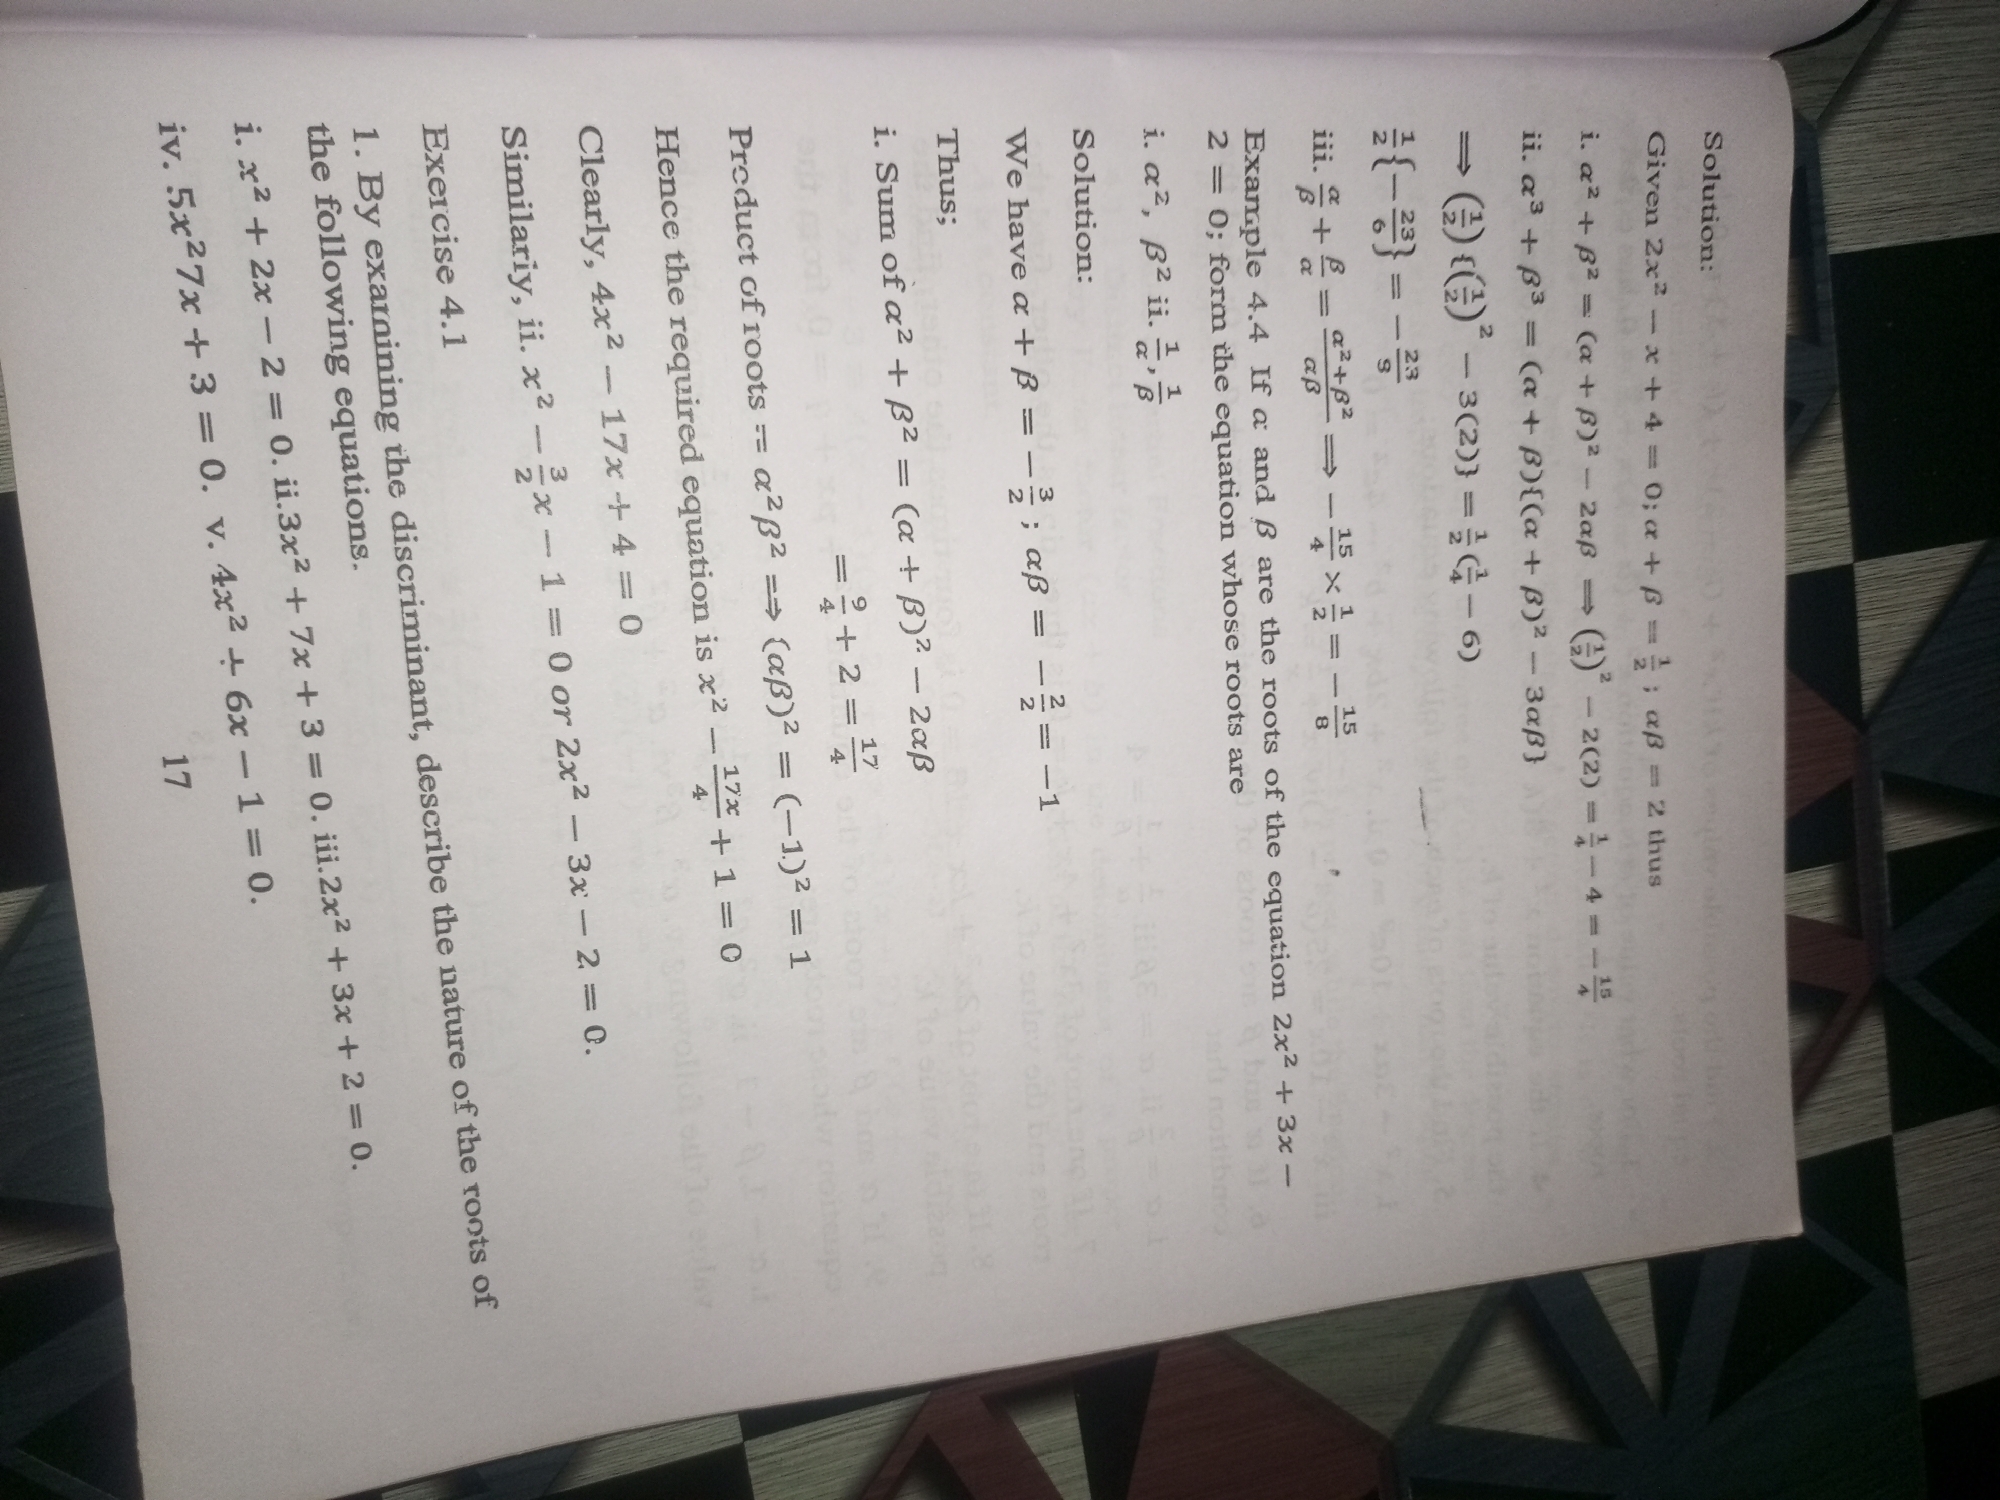 Solution:
Given 2x² − x + 4 = 0; α + β = 1/2 ; αβ = 2 thus
i. α² + β² = (α + β)² − 2αβ ⟹ (1/2)² − 2(2) = 1/4 − 4 = −15/4
ii. α³ + β³ = (α + β){(α + β)² − 3αβ}
⟹ (1/2) {(1/2)² − 3(2)} = 1/2 (1/4 − 6)
1/2 {− 23/6} = − 23/8
iii. α/β + β/α = (α²+β²)/αβ ⟹ − 15/4 × 1/2 = − 15/8
Example 4.4 If α and β are the roots of the equation 2x² + 3x −
2 = 0; form the equation whose roots are
i. α², β² ii. 1/α, 1/β
Solution:
We have α + β = − 3/2 ; αβ = − 2/2 = −1
Thus;
i. Sum of α² + β² = (α + β)² − 2αβ
= 9/4 + 2 = 17/4
Product of roots = α²β² ⟹ (αβ)² = (−1)² = 1
Hence the required equation is x² − 17x/4 + 1 = 0
Clearly, 4x² − 17x + 4 = 0
Similariy, ii. x² − 3/2 x − 1 = 0 or 2x² − 3x − 2 = 0.
Exercise 4.1
1. By examining the discriminant, describe the nature of the roots of
the following equations.
i. x² + 2x − 2 = 0. ii.3x² + 7x + 3 = 0. iii.2x² + 3x + 2 = 0.
iv. 5x²7x + 3 = 0. v. 4x² + 6x − 1 = 0.
17